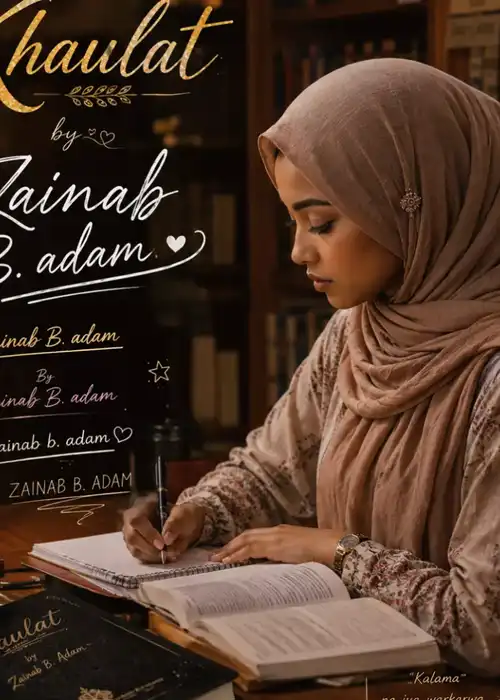 Khaulat
by
Zainab
B. adam
ainab B. adam
By
ainab B. adam
ainab b. adam
ZAINAB B. ADAM
aulat
by
Zainab B. Adam
"Kalama"